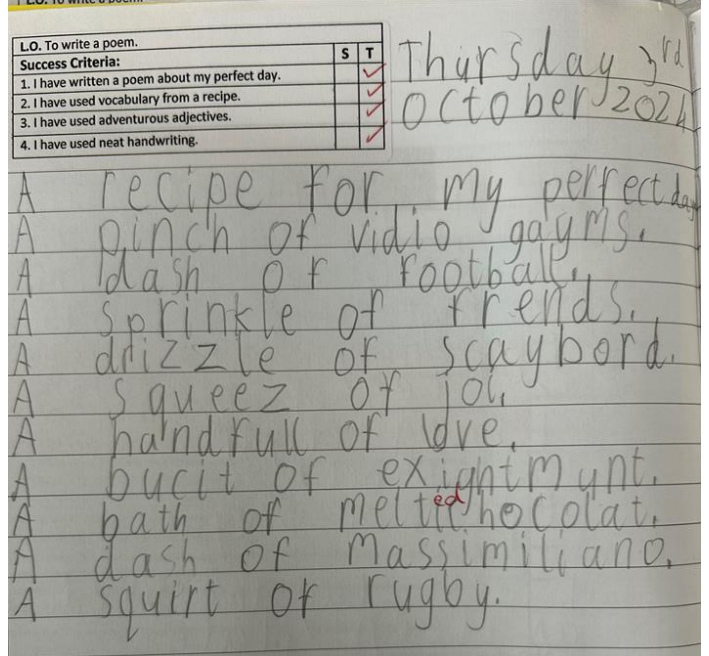 L.O. To write a poem.
Success Criteria: S T
1. I have written a poem about my perfect day. ✓
2. I have used vocabulary from a recipe. ✓
3. I have used adventurous adjectives. ✓
4. I have used neat handwriting. ✓
Thursday 3rd
October 2024
A recipe for my perfect day
A pinch of vidio gayms.
A dash of football.
A sprinkle of frends.
A drizzle of scaybord.
A squeez of joi.
A handfull of love.
A bucit of exightmunt.
A bath of melted chocolat.
A dash of Massimiliano.
A squirt of rugby.